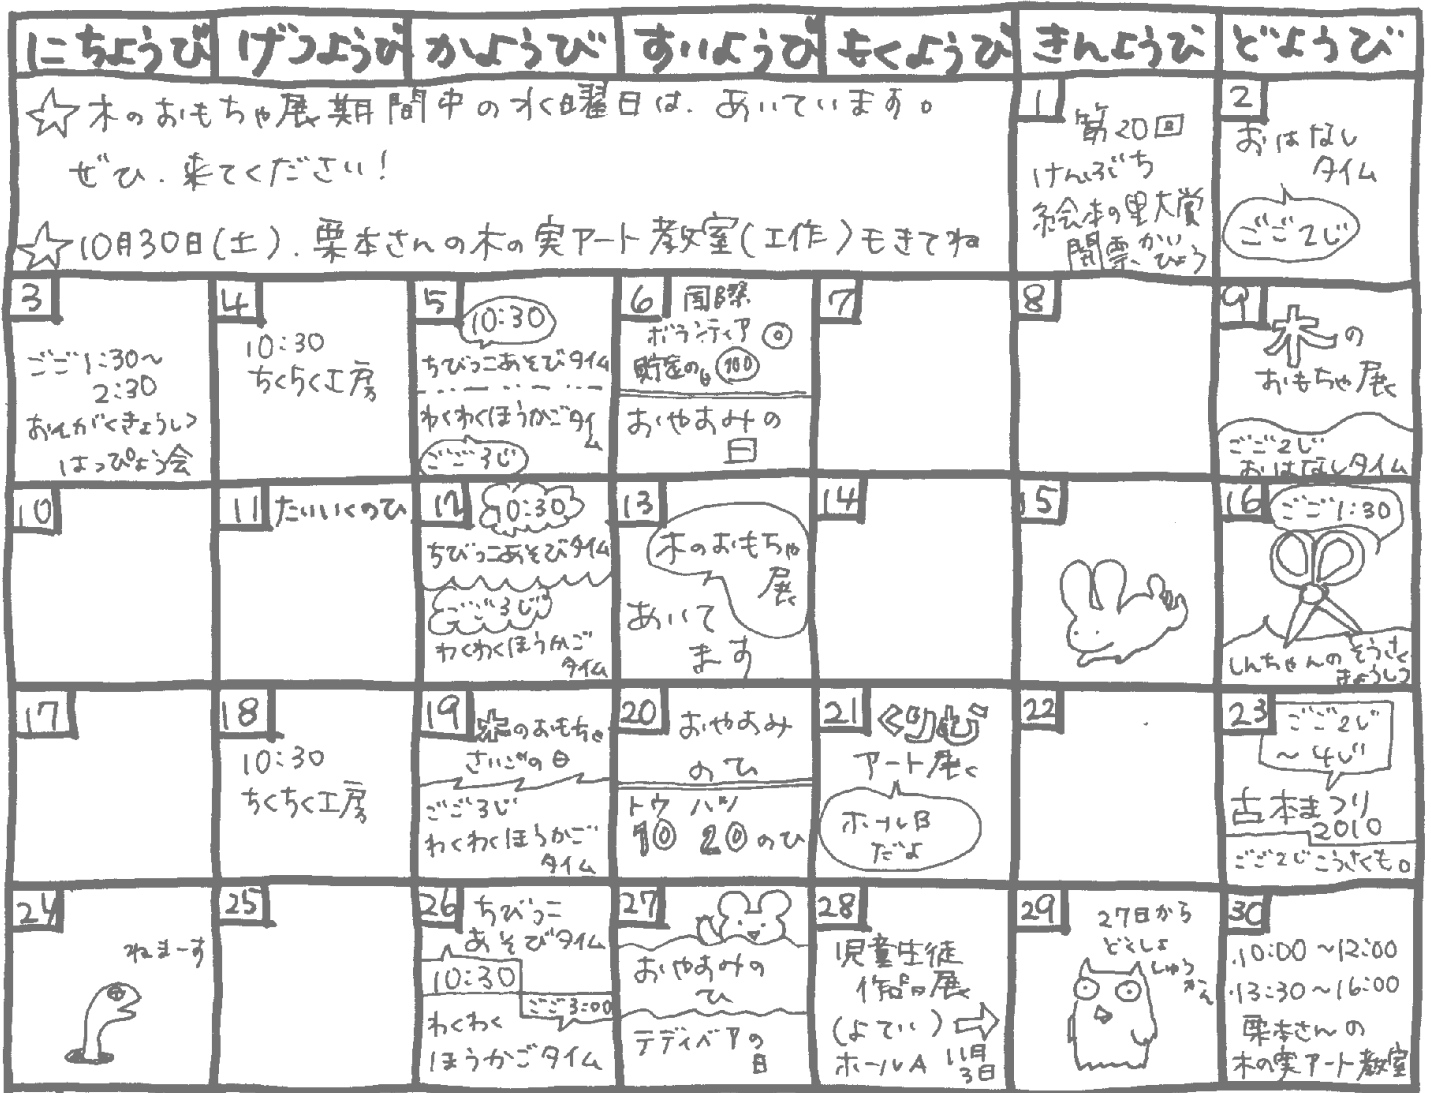 にちようび げつようび かようび すいようび もくようび きんようび どようび
☆木のおもちゃ展期間中の水曜日は、あいています。
ぜひ、来てください!
☆10月30日(土)、栗本さんの木の実アート教室(工作)もきてね
1
第20回
けんぶち
絵本の里大賞
開票かい
ひょう
2
おはなし
タイム
ごご2じ
3
ごご1:30〜
2:30
おんがくきょうしつ
はっぴょう会
4
10:30
ちくちく工房
5
10:30
ちびっこあそびタイム
わくわくほうかごタイ
ム
ごご3じ
6 国際
ボランティア
貯金の日
おやすみの
日
7
8
9
木の
おもちゃ展
ごご2じ
おはなしタイム
10
11 たいいくのひ
12
10:30
ちびっこあそびタイム
ごご3じ
わくわくほうかご
タイム
13
木のおもちゃ
展
あいて
ます
14
15
16
ごご1:30
しんちゃんのそうさく
きょうしつ
17
18
10:30
ちくちく工房
19 木のおもちゃ
さいごの日
ごご3じ
わくわくほうかご
タイム
20 おやすみ
のひ
トウ ハツ
10 20のひ
21 くりむ
アート展
ホールB
だよ
22
23
ごご2じ
〜4じ
古本まつり
2010
ごご2じこうさくも。
24
ねまーす
25
26 ちびっこ
あそびタイム
10:30
ごご3:00
わくわく
ほうかごタイム
27
おやすみの
ひ
テディベアの
日
28
児童生徒
作品展
(よてい)
ホールA
11月
3日
29
27日から
どくしょ
しゅう
かん
30
・10:00〜12:00
・13:30〜16:00
栗本さんの
木の実アート教室